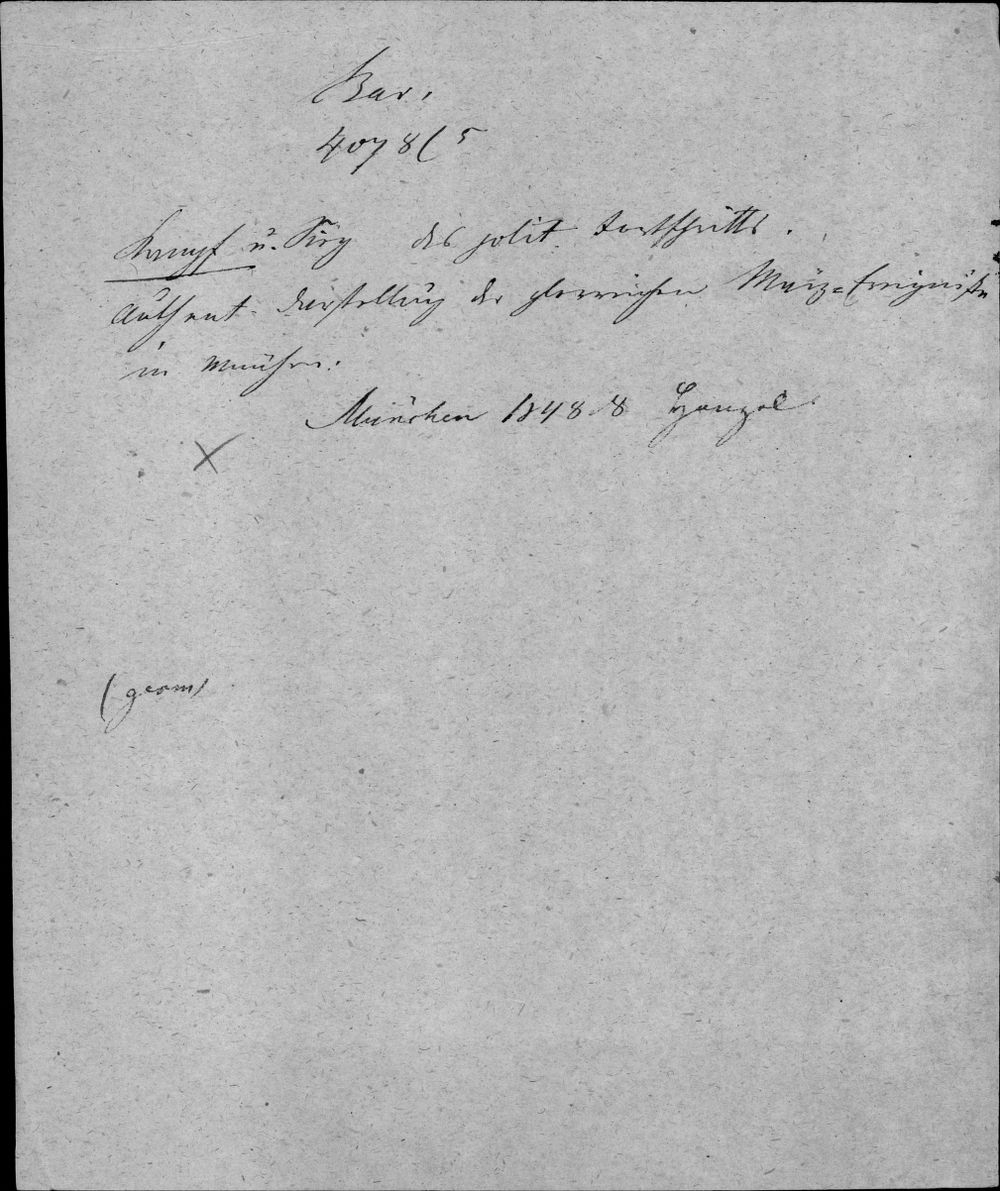 Bav.
4078(5
Kampf u. Sieg des polit. Fortschritts.
Authent. Darstellung der glorreichen März-Ereigniße
in München.
München 1848. 8 Hanzel
X
(germ)